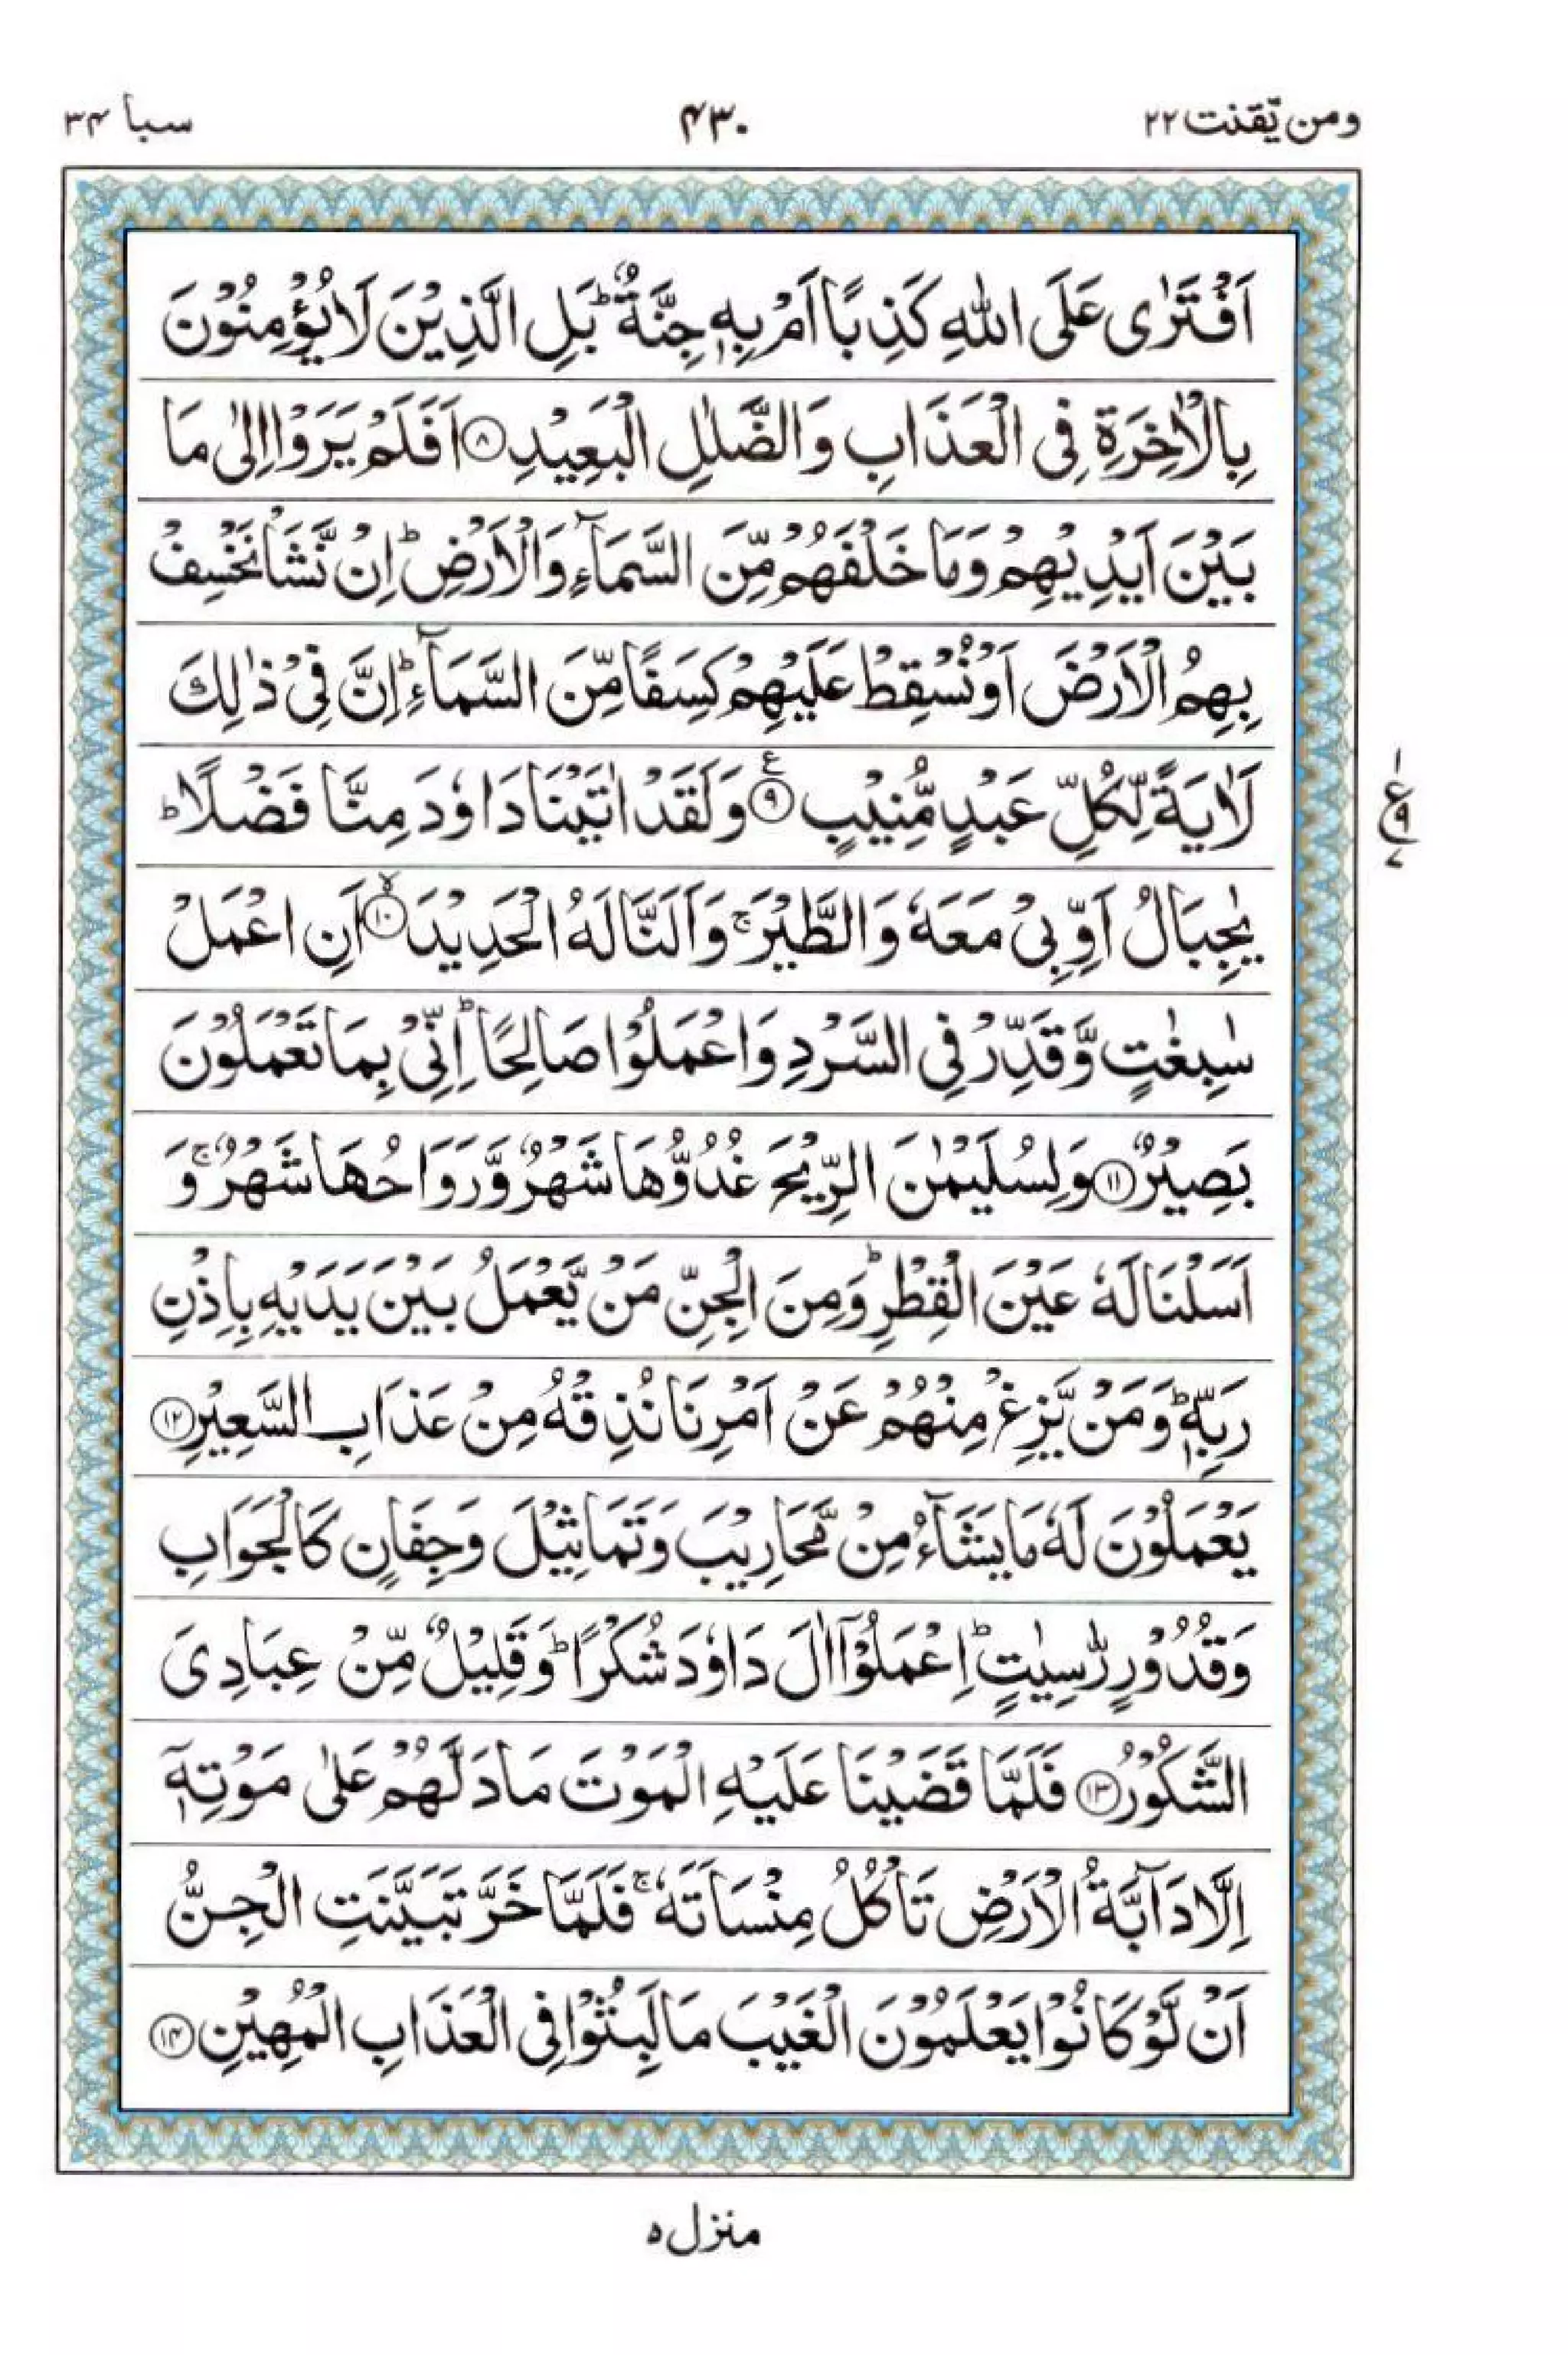 ومن يّقنت ٢٢
٤٣٠
سبا ٣٤
اَفْتَرٰى عَلَى اللّٰهِ كَذِبًا اَمْ بِهٖ جِنَّةٌ ؕ بَلِ الَّذِيْنَ لَا يُؤْمِنُوْنَ
بِالْاٰخِرَةِ فِى الْعَذَابِ وَالضَّلٰلِ الْبَعِيْدِ ۝۸ اَفَلَمْ يَرَوْا اِلٰى مَا
بَيْنَ اَيْدِيْهِمْ وَمَا خَلْفَهُمْ مِّنَ السَّمَآءِ وَالْاَرْضِ ؕ اِنْ نَّشَاْ نَخْسِفْ
بِهِمُ الْاَرْضَ اَوْ نُسْقِطْ عَلَيْهِمْ كِسَفًا مِّنَ السَّمَآءِ ؕ اِنَّ فِىْ ذٰلِكَ
لَاٰيَةً لِّكُلِّ عَبْدٍ مُّنِيْبٍ ۝۹ ع وَلَقَدْ اٰتَيْنَا دَاوٗدَ مِنَّا فَضْلًا ؕ
يٰجِبَالُ اَوِّبِىْ مَعَهٗ وَالطَّيْرَ ۚ وَاَلَنَّا لَهُ الْحَدِيْدَ ۝۱۰ ۙ اَنِ اعْمَلْ
سٰبِغٰتٍ وَّقَدِّرْ فِى السَّرْدِ وَاعْمَلُوْا صَالِحًا ؕ اِنِّىْ بِمَا تَعْمَلُوْنَ
بَصِيْرٌ ۝۱۱ وَلِسُلَيْمٰنَ الرِّيْحَ غُدُوُّهَا شَهْرٌ وَّرَوَاحُهَا شَهْرٌ ۚ وَ
اَسَلْنَا لَهٗ عَيْنَ الْقِطْرِ ؕ وَمِنَ الْجِنِّ مَنْ يَّعْمَلُ بَيْنَ يَدَيْهِ بِاِذْنِ
رَبِّهٖ ؕ وَمَنْ يَّزِغْ مِنْهُمْ عَنْ اَمْرِنَا نُذِقْهُ مِنْ عَذَابِ السَّعِيْرِ ۝۱۲
يَعْمَلُوْنَ لَهٗ مَا يَشَآءُ مِنْ مَّحَارِيْبَ وَتَمَاثِيْلَ وَجِفَانٍ كَالْجَوَابِ
وَقُدُوْرٍ رّٰسِيٰتٍ ؕ اِعْمَلُوْۤا اٰلَ دَاوٗدَ شُكْرًا ؕ وَقَلِيْلٌ مِّنْ عِبَادِىَ
الشَّكُوْرُ ۝۱۳ فَلَمَّا قَضَيْنَا عَلَيْهِ الْمَوْتَ مَا دَلَّهُمْ عَلٰى مَوْتِهٖۤ
اِلَّا دَآبَّةُ الْاَرْضِ تَاْكُلُ مِنْسَاَتَهٗ ۚ فَلَمَّا خَرَّ تَبَيَّنَتِ الْجِنُّ
اَنْ لَّوْ كَانُوْا يَعْلَمُوْنَ الْغَيْبَ مَا لَبِثُوْا فِى الْعَذَابِ الْمُهِيْنِ ۝۱۴
منزل ٥